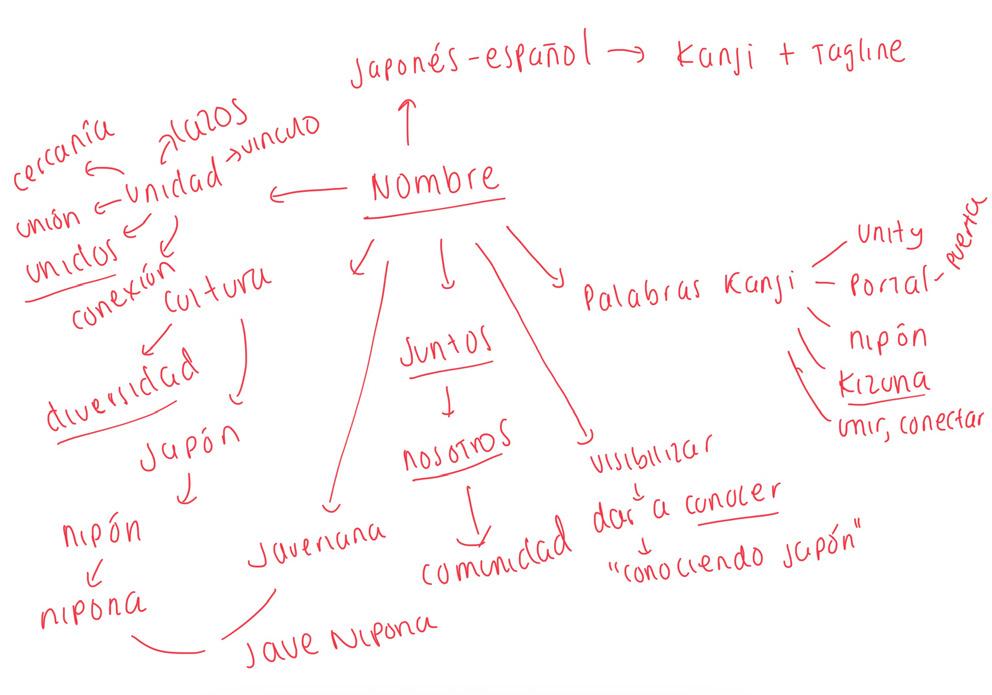 Japonés-español → Kanji + Tagline
lazos
cercanía
vinculo
unidad
Nombre
unión
unidos
conexión
cultura
Palabras Kanji
unity
Portal - puerta
nipón
Kizuna
unir, conectar
Juntos
diversidad
Japón
nosotros
visibilizar
nipón
Javeriana
comunidad
dar a conocer
"conociendo Japón"
nipona
Jave Nipona